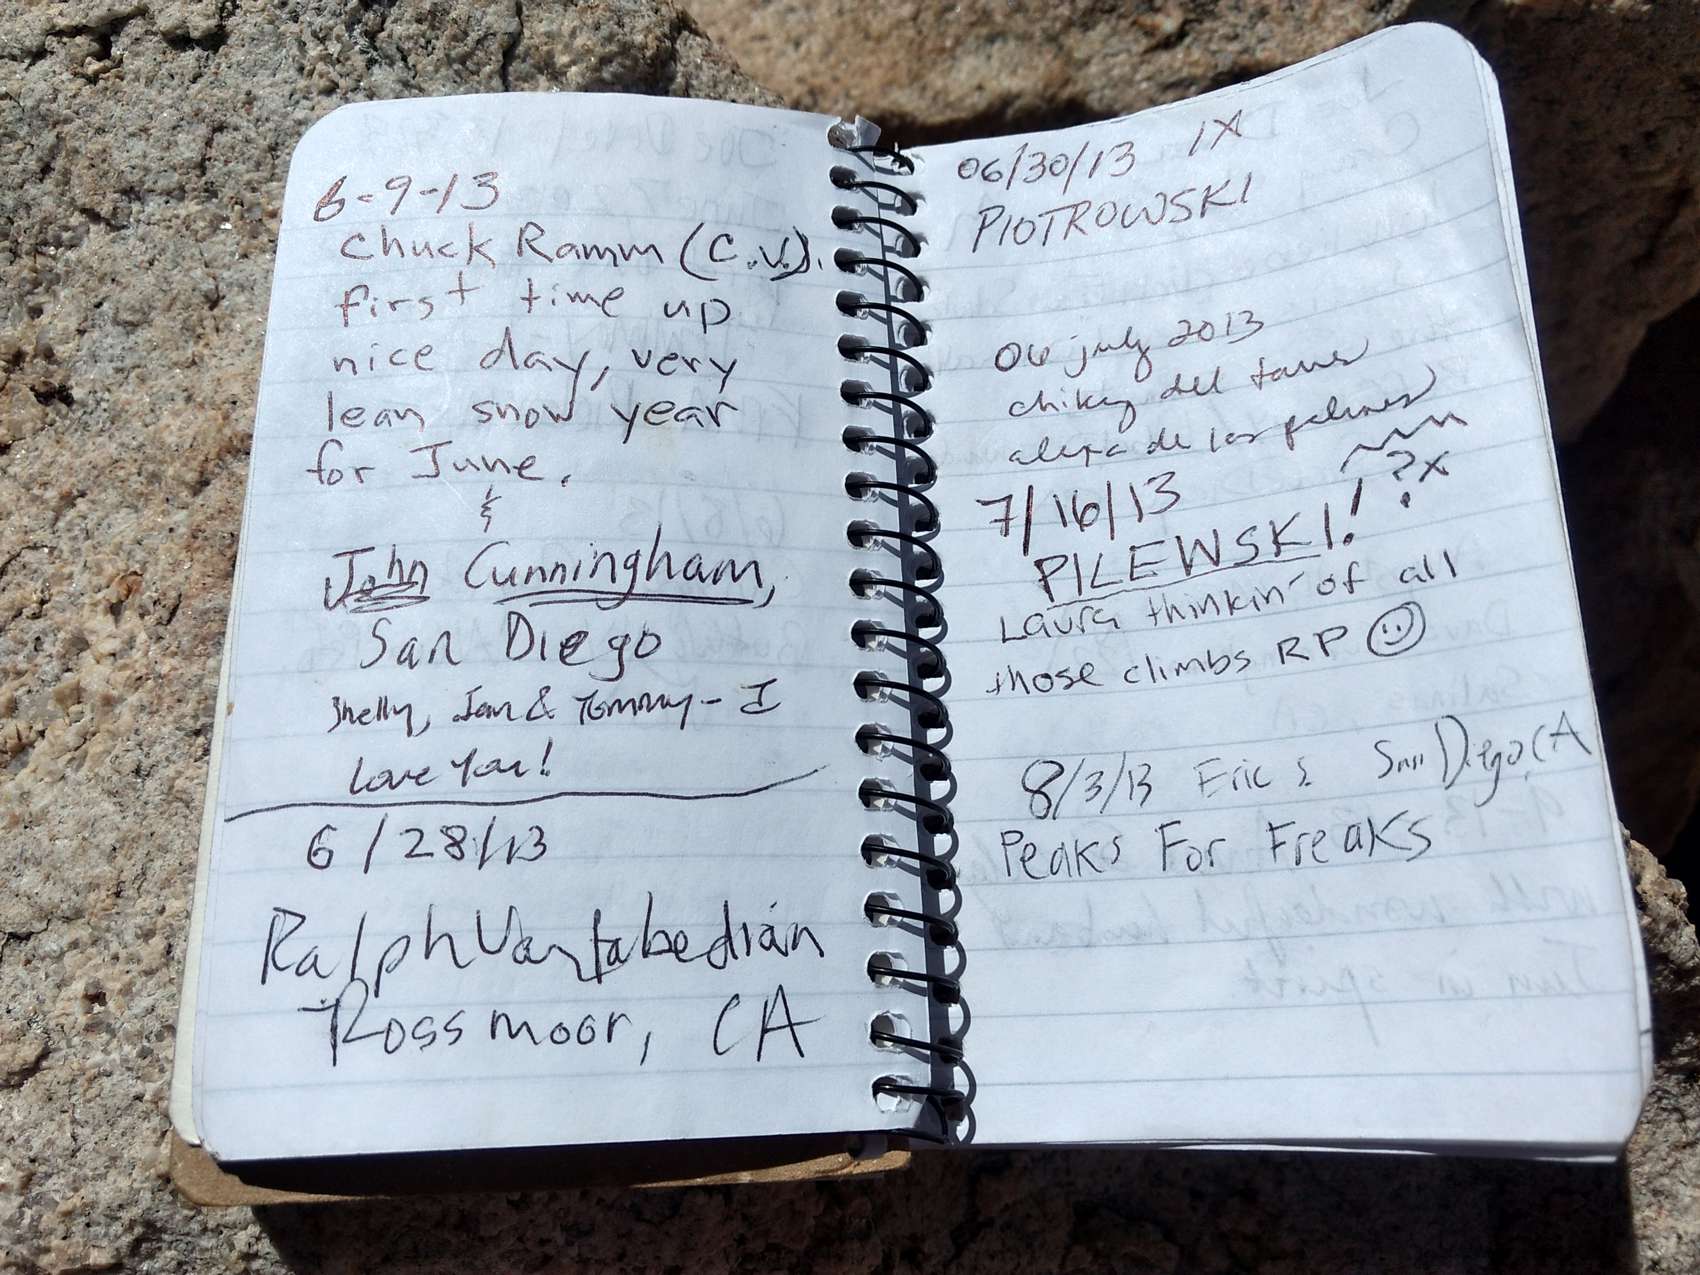 6-9-13
Chuck Ramm (C.V.).
first time up
nice day, very
lean snow year
for June.
&
John Cunningham,
San Diego
Shelly, Jan & Tommy - I
Love You!
6/28/13
Ralph Vartabedian
Rossmoor, CA
06/30/13 1X
PIOTROWSKI
06 july 2013
chiky del
alexa de las palmas
7/16/13 ?X
PILEWSKI!
Laura thinkin' of all
those climbs RP ☺
8/3/13 Eric S San Diego, CA
Peaks For Freaks